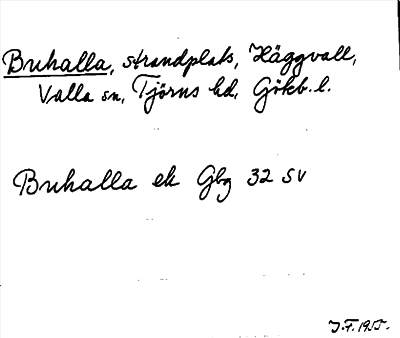 Buhalla, strandplats, Häggvall,
Valla sn, Tjörns hd, Göteb. l.
Buhalla ek Gbg 32 SV
J.F. 1955.